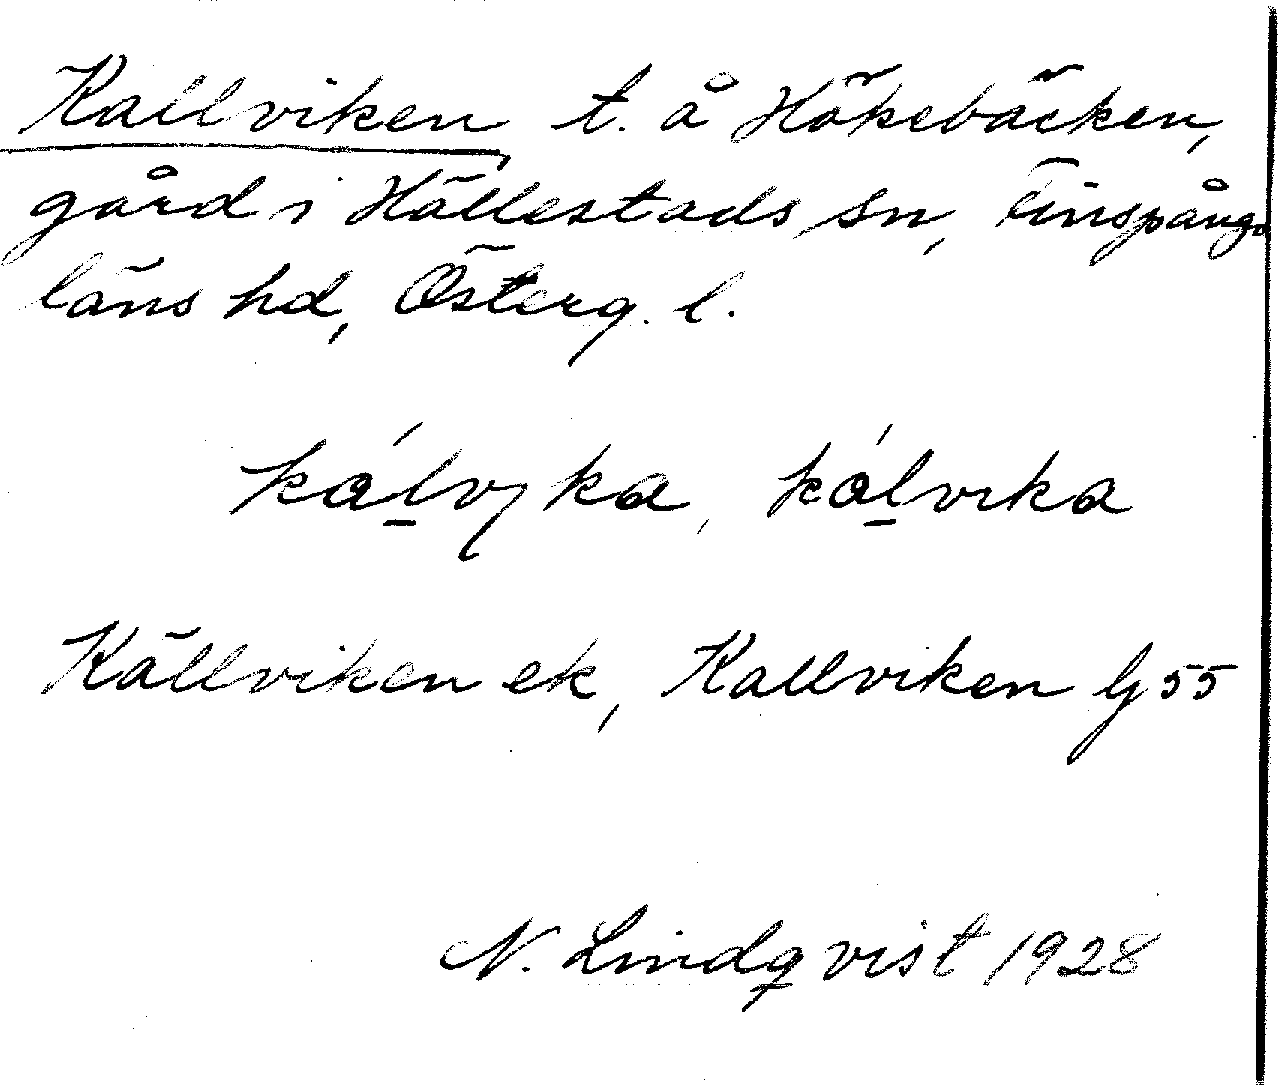 Kallviken t. å Hökebäcken,
gård i Hällestads sn, Finspånga
läns hd, Österg. l.
kálvika, kálvika
Källviken ek, Kallviken Lj 55
N. Lindqvist 1928